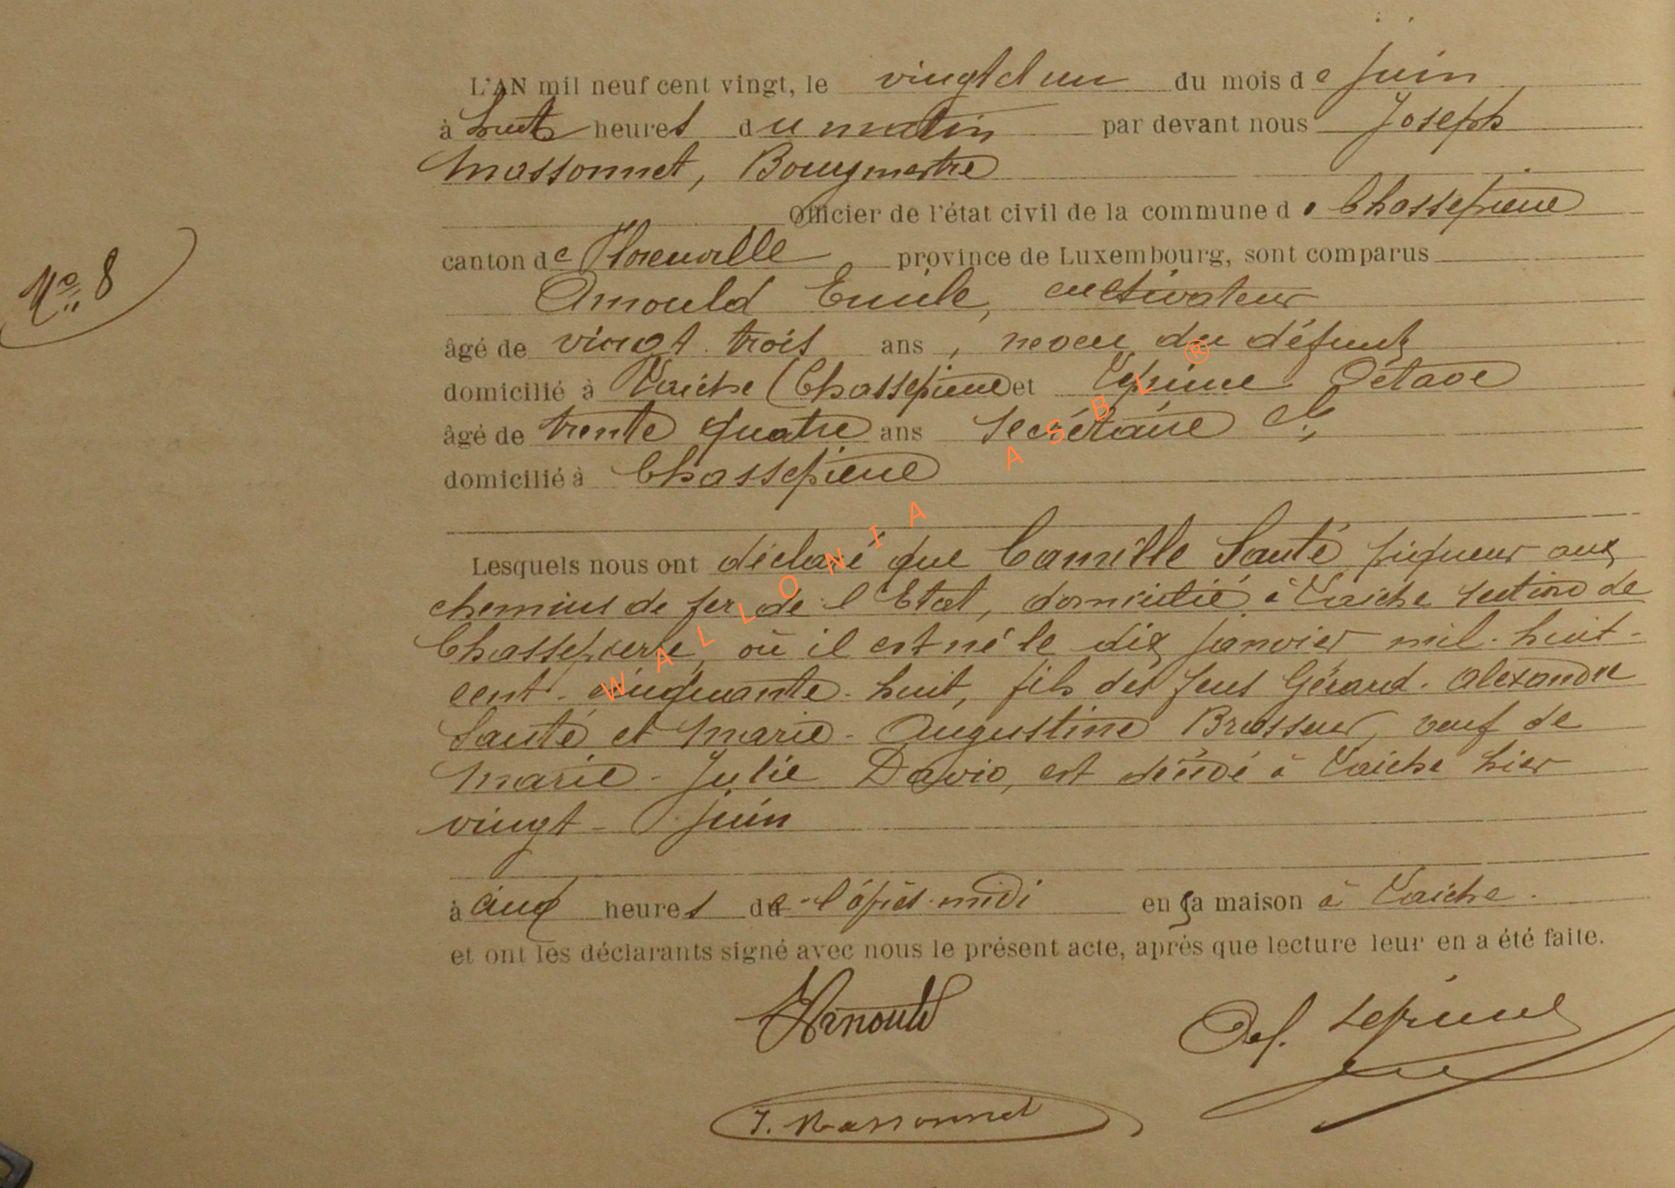 L'AN mil neuf cent vingt, le vingt et un du mois de Juin
à huit heures du matin par devant nous Joseph
Massonnet, Bourgmestre
Officier de l'état civil de la commune de Chassepierre
N° 8
canton de Florenville province de Luxembourg, sont comparus
Arnould Emile, cultivateur
âgé de vingt trois ans, neveu du défunt
domicilié à Laiche (Chassepierre et Lépine Octave
âgé de trente quatre ans secrétaire cl
domicilié à Chassepierre
Lesquels nous ont déclaré que Camille Santé piqueur aux
chemins de fer de l'Etat, domicilié à Laiche section de
Chassepierre, où il est né le dix janvier mil-huit-
cent-cinquante-huit, fils des feus Gérard-Alexandre
Santé et Marie-Augustine Brasseur, veuf de
Marie-Julie David, est décédé à Laiche hier
vingt-juin
à cinq heures de l'après-midi en sa maison à Laiche.
et ont les déclarants signé avec nous le présent acte, après que lecture leur en a été faite.
EArnould
Oct. Lépine
J. Massonnet
WALLONIA ASBL ®